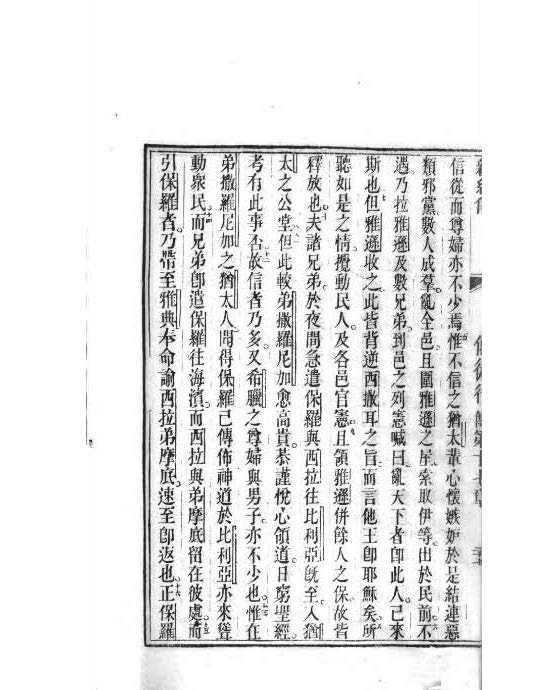 使徒行傳第十七章
信從而尊婦亦不少焉惟不信之猶太輩心懷嫉妒於是結連惡
類邪黨數人成羣亂全邑且圍雅遜之屋索取伊等出於民前不
遇乃拉雅遜及數兄弟到邑之列憲喊曰亂天下者卽此人己來
斯也但雅遜收之此皆背逆西撒耳之旨而言他王卽耶穌矣所
聽如是之情攪動民人及各邑官憲且領雅遜併餘人之保故皆
釋放也夫諸兄弟於夜間急遣保羅與西拉往比利亞旣至入猶
太之公堂但此較弟撒羅尼加愈高貴恭謹悅心領道日窮聖經
考有此事否故信者乃多又希臘之尊婦與男子亦不少也惟在
弟撒羅尼加之猶太人聞得保羅己傳佈神道於比利亞亦來聳
動衆民而兄弟卽遣保羅往海濱而西拉與弟摩底留在彼處而
引保羅者乃帶至雅典奉命諭西拉弟摩底速至卽返也正保羅